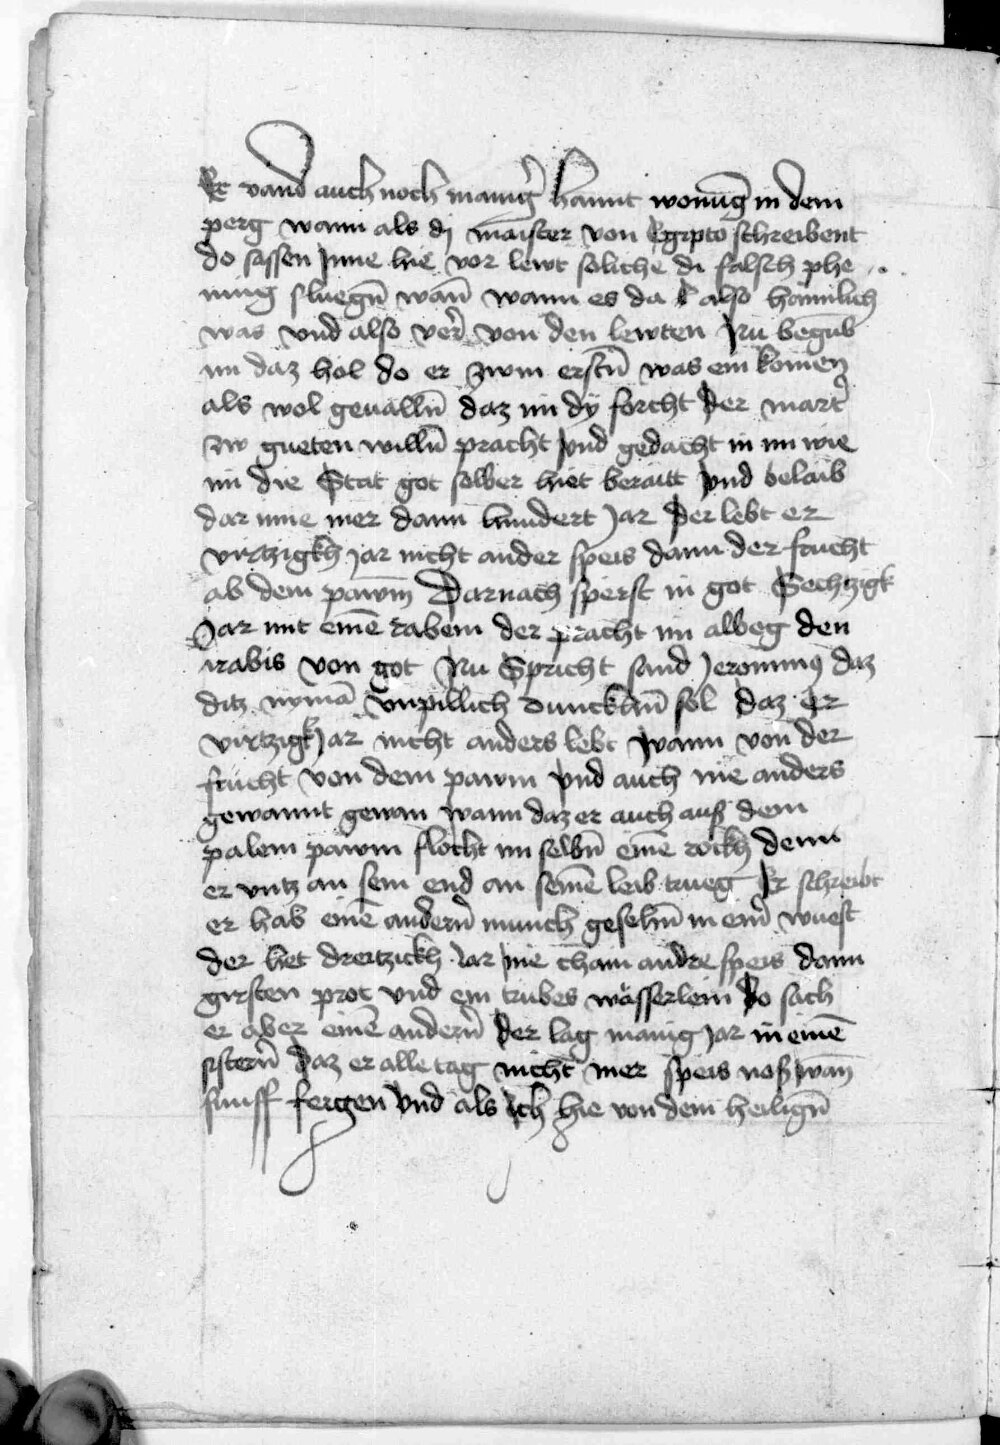 Er vand auch noch manig̃ hannt wonũg in dem
perg wann als dj maister von Egipto schreibent
do sassen Jnne hie vor lewt soliche di falsch phe
ning sluegñ wañ wann es da also haimlich
was vnd also verr̃ von den lewten Nu begũb
im daz hol do er zwm erstñ was ein komen
als wol geuallñ daz im dÿ forcht der martr̃
zw gueten willñ pracht vnd gedacht in im wie
im die Stat got selber hiet beraitt vnd belaib
dar inne mer dann hundert Jar der lebt er
virtzigkh Jar nicht ander speis dann der frucht
ab dem pawm̃ Darnach speist in got Sechtzigk
Jar mit einẽ rabem der pracht im albeg den
irabis von got Nu Spricht sand Jeronimꝰ daz
ditz nymã vnpillich dunckhñ sol daz er
virtzigk Jar nicht anders lebt wann von der
frucht von dem pawm vnd auch nie anders
gewannt gewan wann daz er auch auß dem
palem pawm flocht im selbñ einẽ rockh denn
er vntz an sein end an seinẽ leib trueg Er schreibt
er hab einẽ anderñ munich gesehñ in eiñ wuest
der het dreitzickh Jar nie cham andre speis dann
girsten prot vnd ein trubes wässerlein So sach
er aber einẽ anderñ der lag manig Jar in einẽ
zisterñ daz er alle tag nicht mer speis noß wañ
funff feigen vnd als ich hie von dem heiligñ